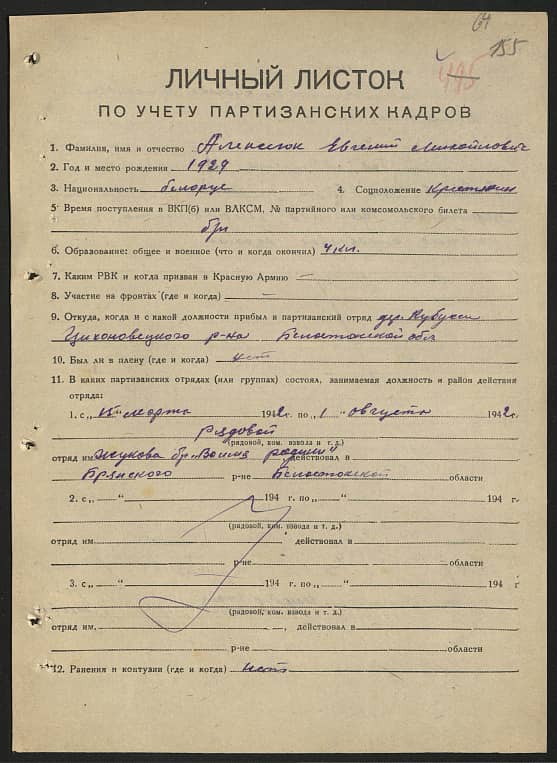 64
155
495
ЛИЧНЫЙ ЛИСТОК
ПО УЧЕТУ ПАРТИЗАНСКИХ КАДРОВ
1. Фамилия, имя и отчество Алексюк Евгений Михайлович
2. Год и место рождения 1929
3. Национальность белорус 4. Соцположение Крестьянин
5 Время поступления в ВКП(б) или ВЛКСМ, № партийного или комсомольского билета
б/п
6. Образование: общее и военное (что и когда окончил) 4 кл.
7. Каким РВК и когда призван в Красную Армию —
8. Участие на фронтах (где и когда) —
9. Откуда, когда и с какой должности прибыл в партизанский отряд дер.
Цихановецкого р-на Белостокской обл
10. Был ли в плену (где и когда) нет
11. В каких партизанских отрядах (или группах) состоял, занимаемая должность и район действия
отряда:
1. с „15" марта 1942 г. по „1" августа 1942 г.
рядовой
(рядовой, ком. взвода и т. д.)
отряд им Жукова бр. "Воины родины" действовал в
Брянского р-не Белостокской области
2. с „ " 194 г. по „ " 194 г.
(рядовой, ком. взвода и т. д.)
отряд им. действовал в
р-не области
3. с „ " 194 г. по „ " 194 г
(рядовой, ком. взвода и т. д.)
отряд им. , действовал в
р-не области
12. Ранения и контузии (где и когда) нет